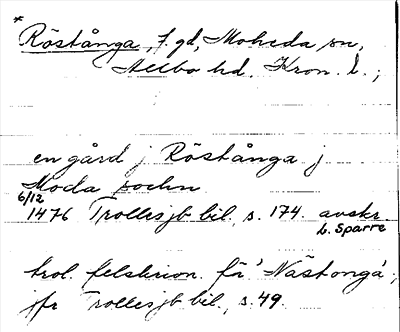 * Röstånga, f. gd, Moheda sn,
Allbo hd, Kron. l.;
en gård j Röstånga j
Moda sochn
6/12
1476 Trollesjb bil, s. 174. avskr.
L. Sparre
trol. felskrivn. för 'Nästonga';
jfr Trollesjb bil, s. 49.